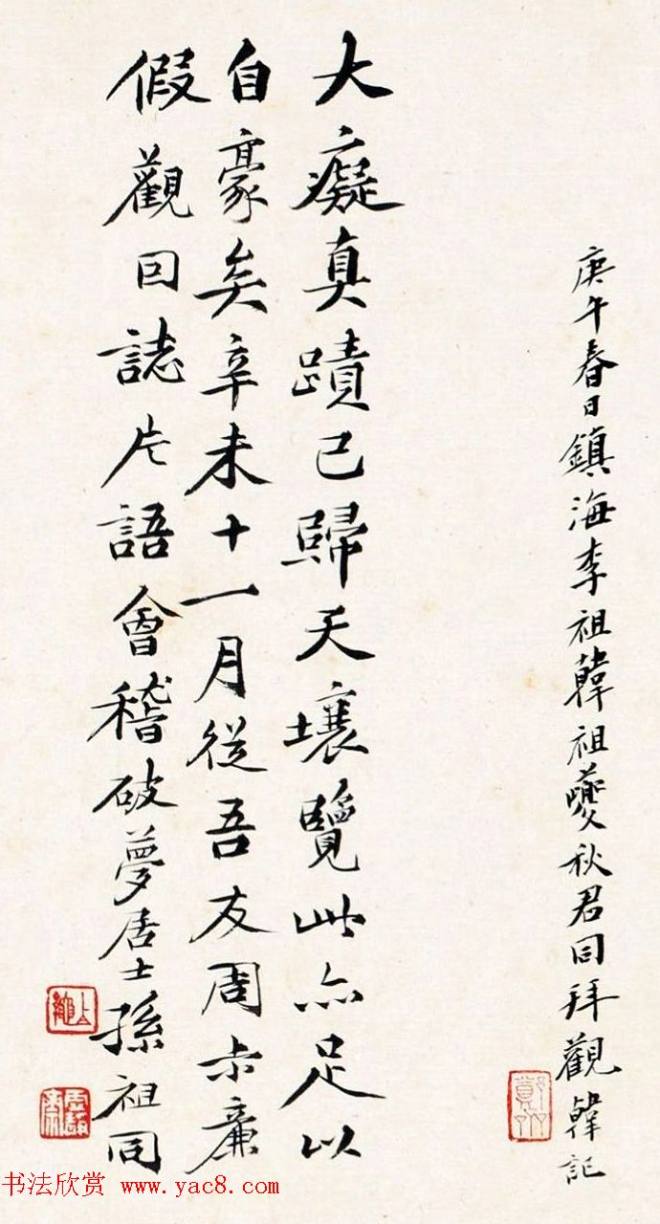 庚午春日鎮海李祖韓祖夔秋君同拜觀韓記
大癡真蹟已歸天壤覽此亦足以
自豪矣辛未十一月從吾友周尗廉
假觀囙誌片語會稽破夢居士孫祖同
书法欣赏 www.yac8.com